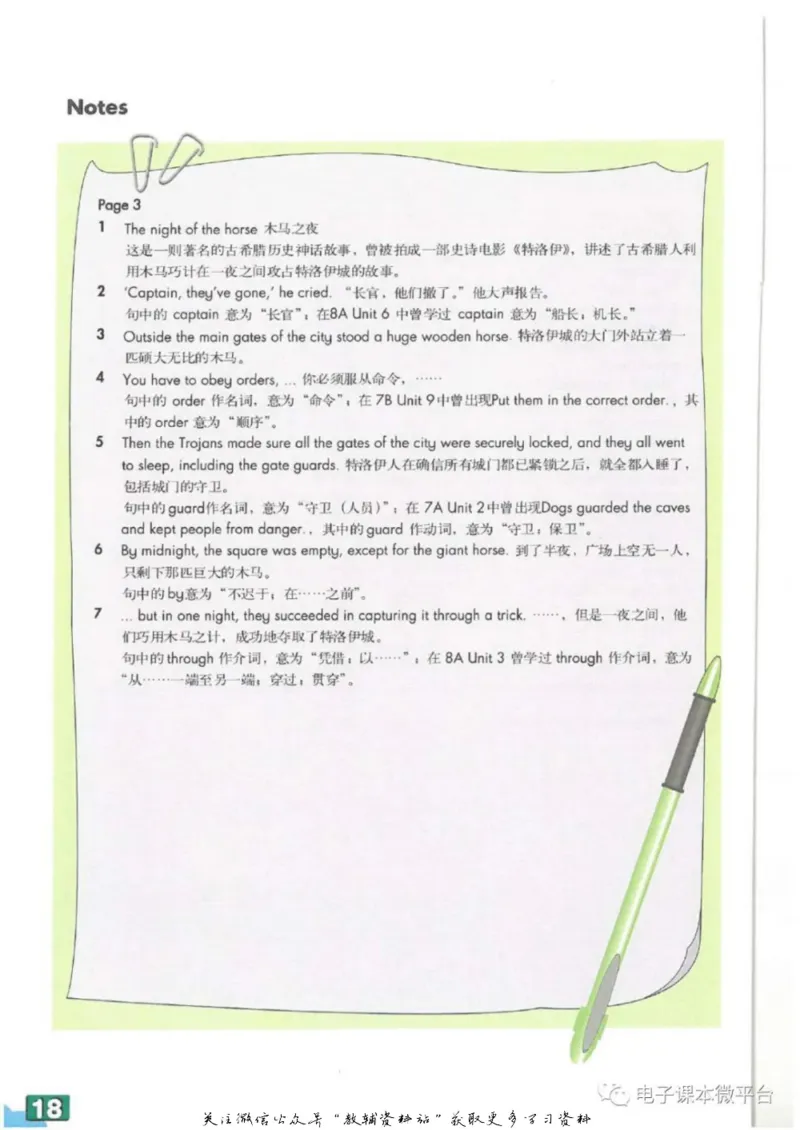 Notes
Page 3
1 The night of the horse 木马之夜
这是一则著名的古希腊历史神话故事，曾被拍成一部史诗电影《特洛伊》，讲述了古希腊人利
用木马巧计在一夜之间攻占特洛伊城的故事。
2 ‘Captain, they’ve gone,’ he cried. “长官，他们撤了。”他大声报告。
句中的 captain 意为“长官”；在8A Unit 6 中曾学过 captain 意为“船长；机长。”
3 Outside the main gates of the city stood a huge wooden horse. 特洛伊城的大门外站立着一
匹硕大无比的木马。
4 You have to obey orders, ... 你必须服从命令，……
句中的 order 作名词，意为“命令”；在 7B Unit 9中曾出现Put them in the correct order.，其
中的 order 意为“顺序”。
5 Then the Trojans made sure all the gates of the city were securely locked, and they all went
to sleep, including the gate guards. 特洛伊人在确信所有城门都已紧锁之后，就全都入睡了，
包括城门的守卫。
句中的guard作名词，意为“守卫（人员）”；在 7A Unit 2中曾出现Dogs guarded the caves
and kept people from danger.，其中的guard 作动词，意为“守卫；保卫”。
6 By midnight, the square was empty, except for the giant horse. 到了半夜，广场上空无一人，
只剩下那匹巨大的木马。
句中的by意为“不迟于；在……之前”。
7 ... but in one night, they succeeded in capturing it through a trick. ……，但是一夜之间，他
们巧用木马之计，成功地夺取了特洛伊城。
句中的through 作介词，意为“凭借；以……”；在 8A Unit 3 曾学过 through 作介词，意为
“从……一端至另一端；穿过；贯穿”。
18
电子课本微平台
关注微信公众号“教辅资料站”获取更多学习资料